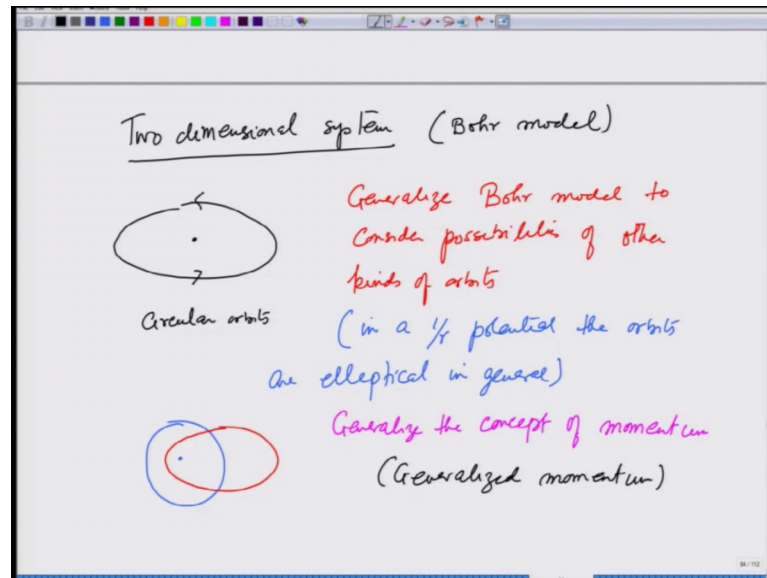 Two dimensional system (Bohr model)
Generalize Bohr model to
consider possibilities of other
kinds of orbits
Circular orbits
(in a 1/r potential the orbits
are elleptical in general)
Generalize the concept of momentum
(Generalized momentum)